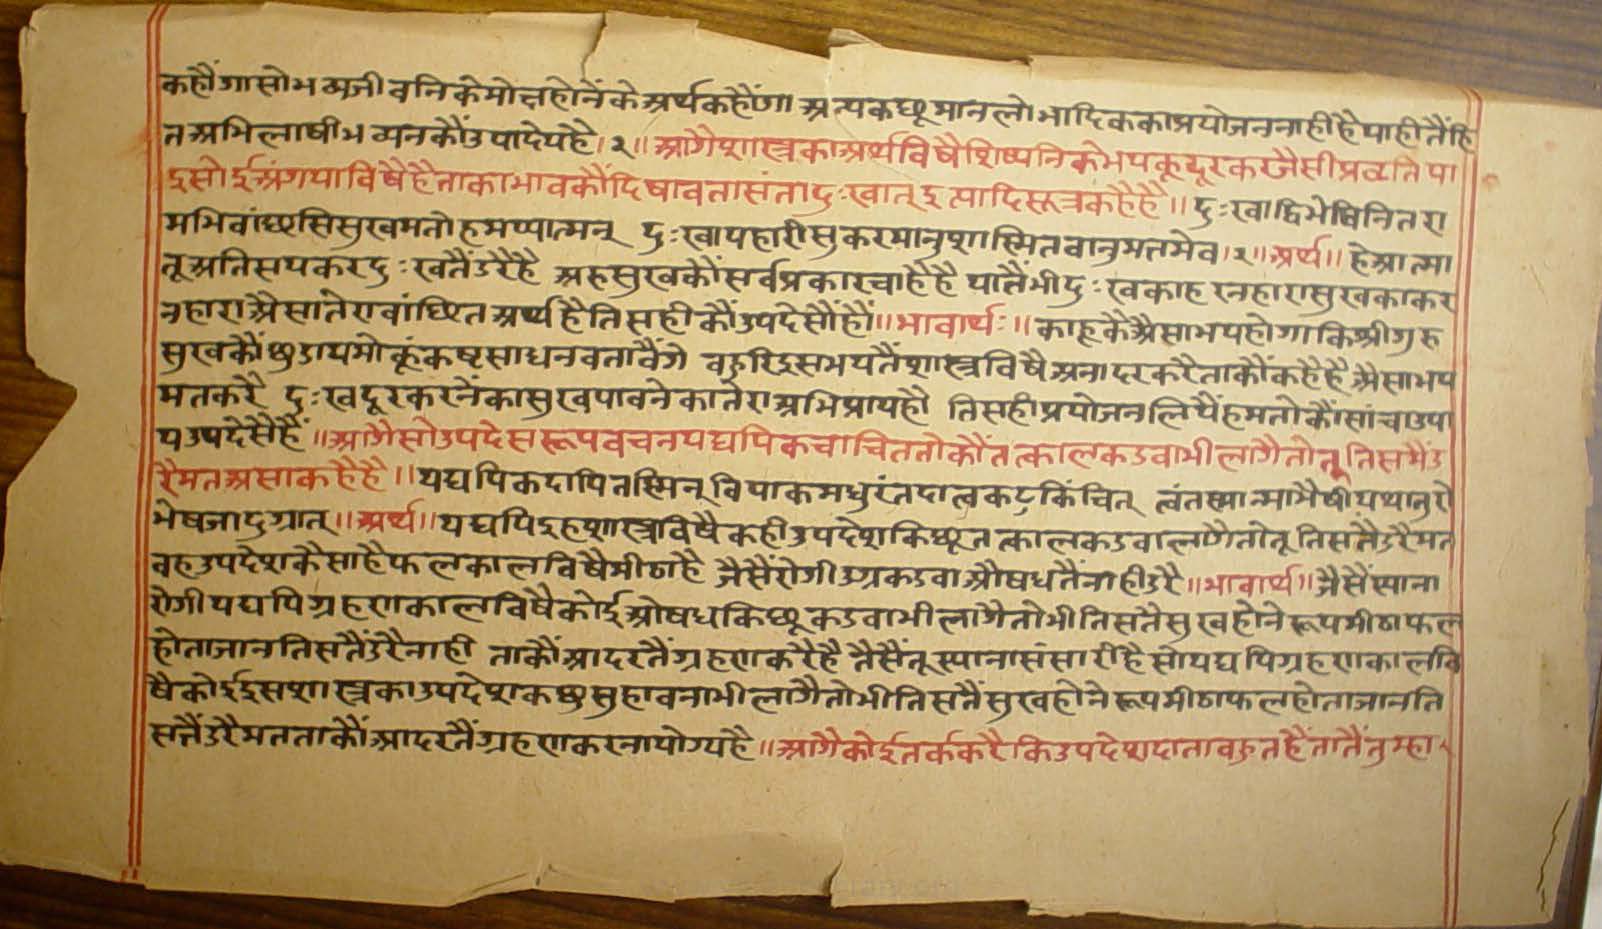 कहौंगा सो भव्यजीवनिके मोक्ष होनेंके अर्थ कहौंगा अन्य कछू मान लोभादिकका प्रयोजन नाहीं है याही तैं हि
त अभिलाषी भव्यनकौं उपादेय है।१॥ आगै शास्त्रका अर्थविषै शिष्यनिके भयकू दूर कर जैसी प्रवृति पा
इसो ई अंग याविषै है ताका भावकौं दिषावता संता दुःखात् इत्यादि सूत्र कहै है॥ दुःखाद्विभेषि नितरा
मभिवांछसि सुखमतोहमप्यात्मन् दुःखापहारी सुकरमानुशास्मि तवानुमतमेव।२॥ अर्थ॥ हे आत्मा
तू अतिसयकर दुःखतैं डरै है अरु सुखकौं सर्वप्रकार चाहै है यातैं भी दुःखका हरनहारा सुखका कर
नहारा अैसा तेरा वांछित अर्थ है तिसहीकौं उपदेसौं हौं॥ भावार्थः॥ काहूकै अैसा भय होगा कि श्रीगुरु
सुखकौं छुडाय मोकूं कष्टसाधन वतावैंगे वहुरि इस भयतैं शास्त्रविषै अनादर करै ताकौं कहै है अैसा भय
मत करै दुःख दूर करनेंका सुख पावनेका तेरा अभिप्राय है तिसही प्रयोजन लियैं हम तोकौं सांचा उपा
य उपदेसै हैं॥ आगै सो उपदेसरूप वचन यद्यपि कवाचित तोकौं तत्काल कडवा भी लागै तो तू तिसमैं ड
रै मत अैसा कहै है॥ यद्यपि कदापि तस्मिन् विपाकमधुरं तदात्व कटु किंचित् त्वं तस्मान्माभैषीर्यथातुरो
भेषजादुग्रात्॥ अर्थ॥ यद्यपि इह शास्त्रविषै कही उपदेश किछू तत्काल कडवा लागै तो तू तिसतै डरै मत
वह उपदेश कैसा है फलकालविषै मीठा है जैसैं रोगी उग्र कडवा औषधतैं नाही डरै॥ भावार्थ॥ जैसैं स्याना
रोगी यद्यपि ग्रहणकालविषै कोई औषध किछू कडवा भी लागै तो भी तिसतै सुख होनेरूप मीठा फल
होता जानति सतैं डरै नाही ताकौं आदरतैं ग्रहण करै है तैसैं तू स्याना संसारी है सो यद्यपि ग्रहणकालवि
षै कोई इस शास्त्रका उपदेश कछु सुहावना भी लागै तो भी तिसतैं सुख होनेरूप मीठा फल होता जानति
सतैं डरै मतताकौं आदरतैं ग्रहण करना योग्य है॥ आगै कोई तर्क करै कि उपदेशदाता वहुत हैं तातैं तुम्हा